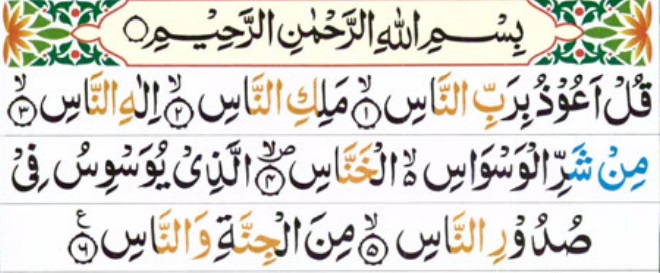 بِسْمِ اللهِ الرَّحْمٰنِ الرَّحِيْمِ
قُلْ اَعُوْذُ بِرَبِّ النَّاسِ ۙ﴿۱﴾ مَلِكِ النَّاسِ ۙ﴿۲﴾ اِلٰهِ النَّاسِ ۙ﴿۳﴾
مِنْ شَرِّ الْوَسْوَاسِ ۙ۬ الْخَنَّاسِ ۪ۙ﴿۴﴾ الَّذِىْ يُوَسْوِسُ فِىْ
صُدُوْرِ النَّاسِ ۙ﴿۵﴾ مِنَ الْجِنَّةِ وَالنَّاسِ ﴿۶﴾ ع